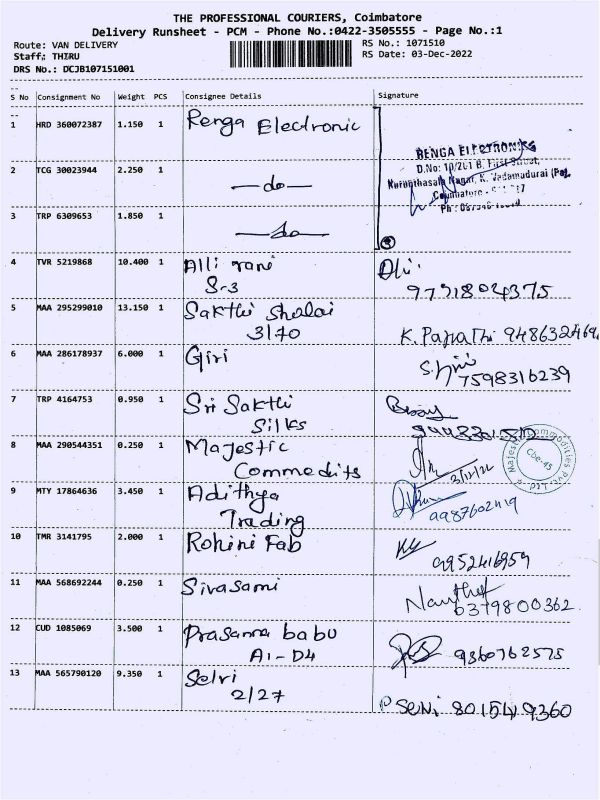 THE PROFESSIONAL COURIERS, Coimbatore
Delivery Runsheet - PCM - Phone No.:0422-3505555 - Page No.:1
Route: VAN DELIVERY RS No.: 1071510
Staff.: THIRU RS Date: 03-Dec-2022
DRS No.: DCJB107151001
S No Consignment No Weight PCS Consignee Details Signature
1 HRD 360072387 1.150 1 Renga Electronic
RENGA ELECTRONICS
2 TCG 30023944 2.250 1 —do—
D.No: 10/261 B, First Street,
Nagar, K. Vadamadurai
Coimbatore -
3 TRP 6309653 1.850 1 —do—
4 TVR 5219868 10.400 1 Alli rani
S-3 97918 04375
5 MAA 295299010 13.150 1 Sakthi Shalai
3/70 K. 948632469
6 MAA 286178937 6.000 1 Giri
7598316239
7 TRP 4164753 0.950 1 Sri Sakthi
Silks
8 MAA 290544351 0.250 1 Majestic
Commodits 3/12/22
Majestic Commodities Pvt. Ltd.
Cbe-45
9 MTY 17864636 3.450 1 Adithya
Trading
10 TMR 3141795 2.000 1 Rohini Fab
9952416959
11 MAA 568692244 0.250 1 Sivasami
6379800362
12 CUD 1085069 3.500 1 Prasanna babu
A1-D4 9360762575
13 MAA 565790120 9.350 1 Selvi
2/27